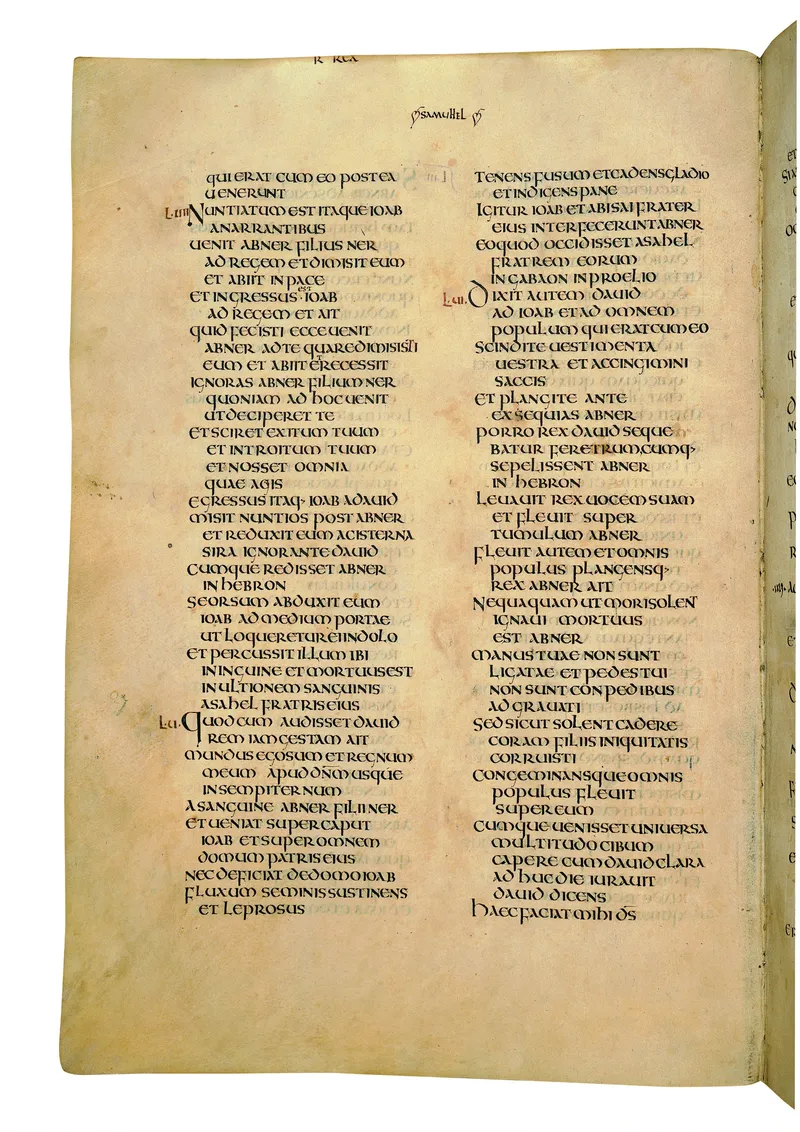 SAMUHEL
QUI ERAT CUM EO POSTEA
UENERUNT
L.IIII NUNTIATUM EST ITAQUE IOAB
ANARRANTIBUS
UENIT ABNER FILIUS NER
AD REGEM ET DIMISIT EUM
ET ABIIT IN PACE
ET INGRESSUS EST IOAB
AD REGEM ET AIT
QUID FECISTI ECCE UENIT
ABNER AD TE QUARE DIMISISTI
EUM ET ABIIT ET RECESSIT
IGNORAS ABNER FILIUM NER
QUONIAM AD HOC UENIT
UT DECIPERET TE
ET SCIRET EXITUM TUUM
ET INTROITUM TUUM
ET NOSSET OMNIA
QUAE AGIS
EGRESSUS ITAQ· IOAB A DAUID
MISIT NUNTIOS POST ABNER
ET REDUXIT EUM A CISTERNA
SIRA IGNORANTE DAUID
CUMQUE REDISSET ABNER
IN HEBRON
SEORSUM ABDUXIT EUM
IOAB AD MEDIUM PORTAE
UT LOQUERETUR EI IN DOLO
ET PERCUSSIT ILLUM IBI
IN INGUINE ET MORTUUS EST
IN ULTIONEM SANGUINIS
ASAHEL FRATRIS EIUS
L.U. QUOD CUM AUDISSET DAUID
REM IAM GESTAM AIT
MUNDUS EGO SUM ET REGNUM
MEUM APUD DNM USQUE
IN SEMPITERNUM
A SANGUINE ABNER FILII NER
ET UENIAT SUPER CAPUT
IOAB ET SUPER OMNEM
DOMUM PATRIS EIUS
NEC DEFICIAT DE DOMO IOAB
FLUXUM SEMINIS SUSTINENS
ET LEPROSUS
TENENS FUSUM ET CADENS GLADIO
ET INDIGENS PANE
IGITUR IOAB ET ABISAI FRATER
EIUS INTERFECERUNT ABNER
EO QUOD OCCIDISSET ASAHEL
FRATREM EORUM
IN GABAON IN PROELIO
L.UI. DIXIT AUTEM DAUID
AD IOAB ET AD OMNEM
POPULUM QUI ERAT CUM EO
SCINDITE UESTIMENTA
UESTRA ET ACCINGIMINI
SACCIS
ET PLANGITE ANTE
EXSEQUIAS ABNER
PORRO REX DAUID SEQUE
BATUR FERETRUM, CUMQ·
SEPELISSENT ABNER
IN HEBRON
LEUAUIT REX UOCEM SUAM
ET FLEUIT SUPER
TUMULUM ABNER
FLEUIT AUTEM ET OMNIS
POPULUS PLANGENSQ·
REX ABNER AIT
NEQUAQUAM UT MORI SOLENT
IGNAUI MORTUUS
EST ABNER
MANUS TUAE NON SUNT
LIGATAE ET PEDES TUI
NON SUNT CONPEDIBUS
AD GRAUATI
SED SICUT SOLENT CADERE
CORAM FILIIS INIQUITATIS
CORRUISTI
CONGEMINANSQUE OMNIS
POPULUS FLEUIT
SUPER EUM
CUMQUE UENISSET UNIUERSA
MULTITUDO CIBUM
CAPERE CUM DAUID CLARA
AD HUC DIE IURAUIT
DAUID DICENS
HAEC FACIAT MIHI DS